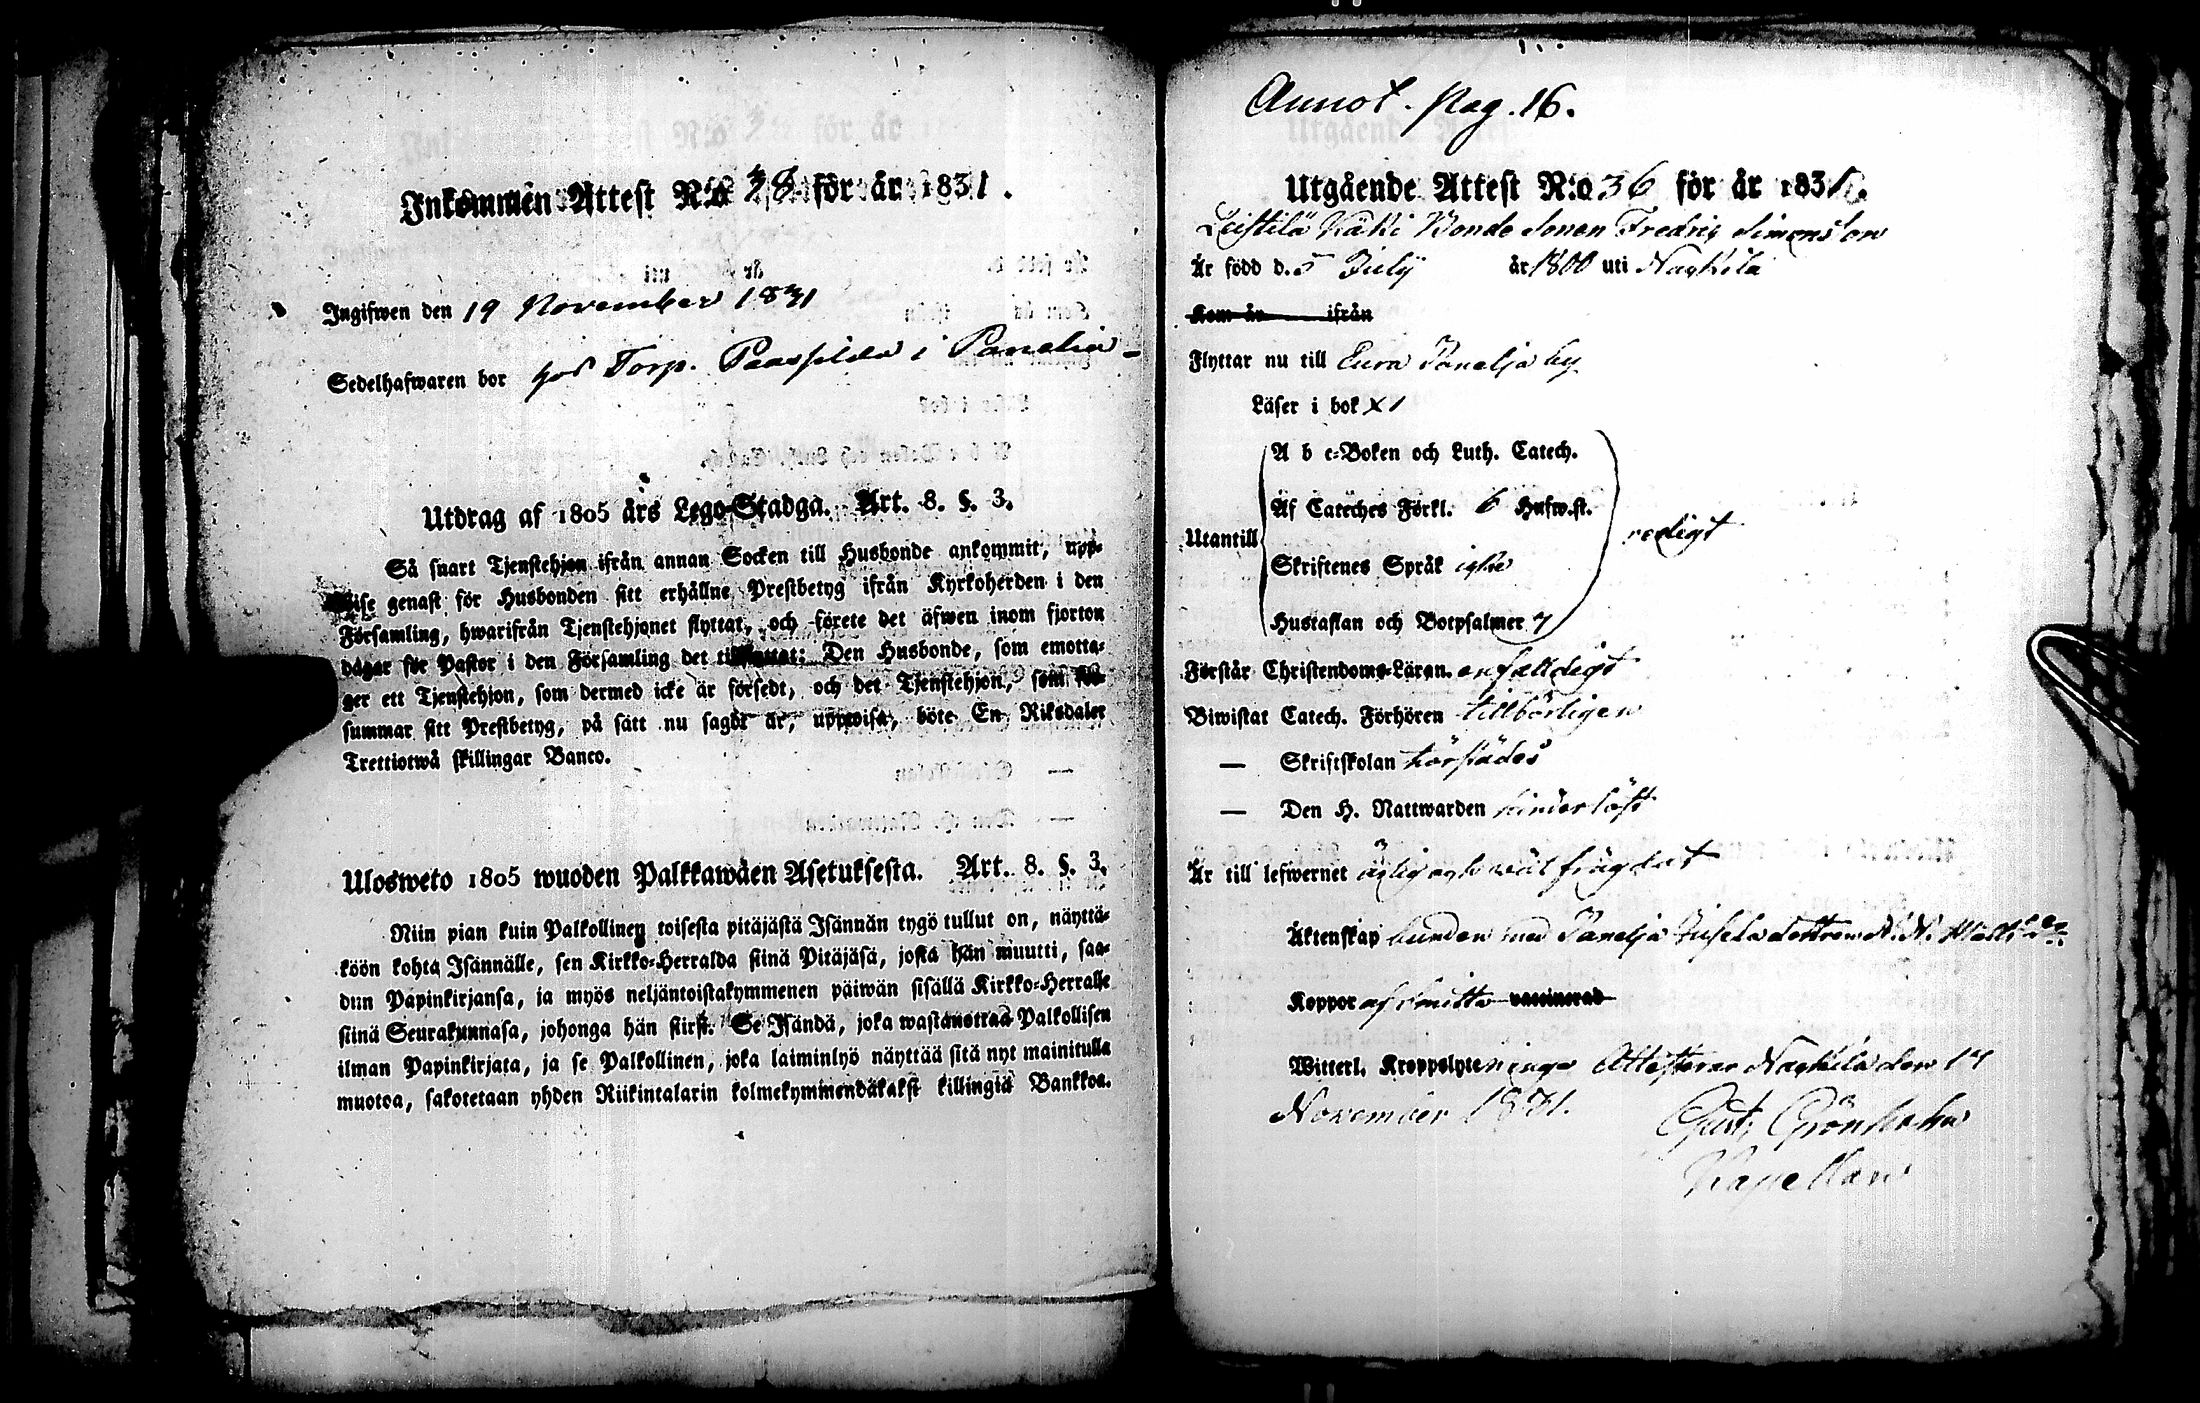 Inkommen Attest N:o 38 för år 1831.
Ingifwen den 19 November 1831
Sedelhafwaren bor hos Torp. Paassilda i Panelia
Utdrag af 1805 års Lego-Stadga. Art. 8. §. 3.
Så snart Tjenstehjon ifrån annan Socken till Husbonde ankommit, upp-
wise genast för Husbonden sitt erhållne Prestbetyg ifrån Kyrkoherden i den
Församling, hwarifrån Tjenstehjonet flyttat, och förete det äfwen inom fjorton
dagar för Pastor i den Församling det tillflyttat: Den Husbonde, som emotta-
ger ett Tjenstehjon, som dermed icke är försedt, och det Tjenstehjon, som för-
summar sitt Prestbetyg, på sätt nu sagdt är, uppwisa, böte En Riksdaler
Trettiotwå skillingar Banco.
Ulosweto 1805 wuoden Palkkawäen Asetuksesta. Art. 8. §. 3.
Niin pian kuin Palkollinen toisesta pitäjästä Isännän tygö tullut on, näyttä-
köön kohta Isännälle, sen Kirkko-Herralda siinä Pitäjäsä, josta hän muutti, saa-
dun Papinkirjansa, ja myös neljäntoistakymmenen päiwän sisällä Kirkko-Herralle
siinä Seurakunnasa, johonga hän siirsi. Se Isändä, joka wastanottaa Palkollisen
ilman Papinkirjata, ja se Palkollinen, joka laiminlyö näyttää sitä nyt mainitulla
muotoa, sakotetaan yhden Riikintalarin kolmekymmendäkaksi killingiä Bankkoa.
Annot. Pag. 16.
Utgående Attest N:o 36 för år 1831.
Leistilä Käki Bonde Sonen Fredric Simonsson
Är född d. 5 July år 1800 uti Nackila
Kom år ifrån
Flyttar nu till Eura Panelja by
Läser i bok x 1
A b c-Boken och Luth. Catech.
Af Cateches Förkl. 6 Hufw.st.
Utantill redigt
Skriftenes Språk icke
Hustaflan och Botpsalmer 7
Förstår Christendoms-Läran. enfalldigt
Biwistat Catech. Förhören tillbörligen
— Skriftskolan härstädes
— Den H. Nattwarden hinderlöst
Är till lefwernet ärlig och wäl frägdat
Äktenskap bunden med Panelja dottren N. N. Matts dr
Koppor af smitta vaccinerad
Witterl. Kroppslyte ringa Attesterar Nackila den 17
November 1831.
Gust. Grönholm
Kapellan